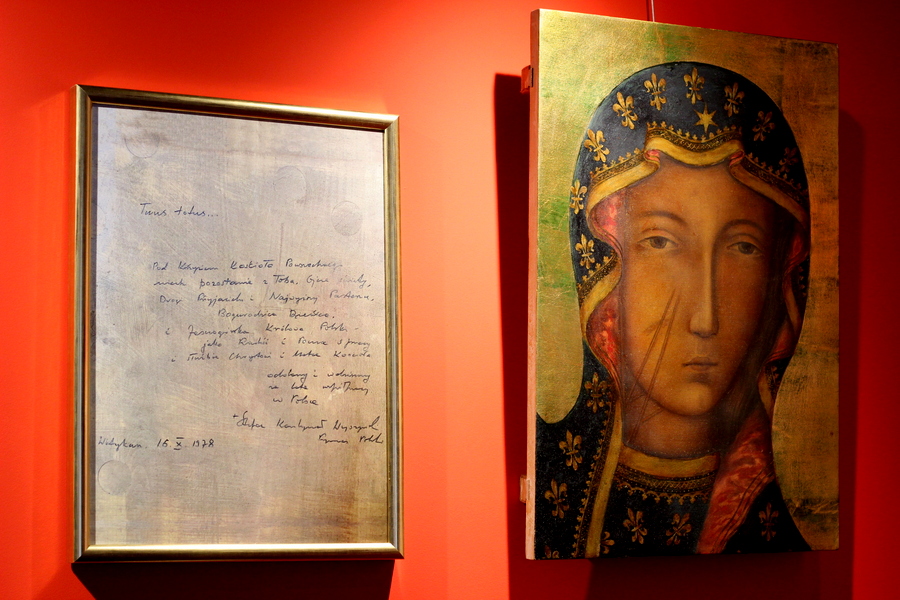 Totus tuus...
Pod Krzyżem Kościoła Powszechnego
niech pozostanie z Tobą, Ojcze
Drogi Przyjacielu - Najwyższy Pasterzu,
Bogurodzica Dziewica,
i Jasnogórska Królowa Polski -
jako Radość i Pomoc
i Matka Chrystusa i Matka Kościoła
oddany i wdzięczny
za lata współpracy
w Polsce
+ Stefan Kardynał Wyszyński
Prymas Polski
Watykan. 16.X.1978